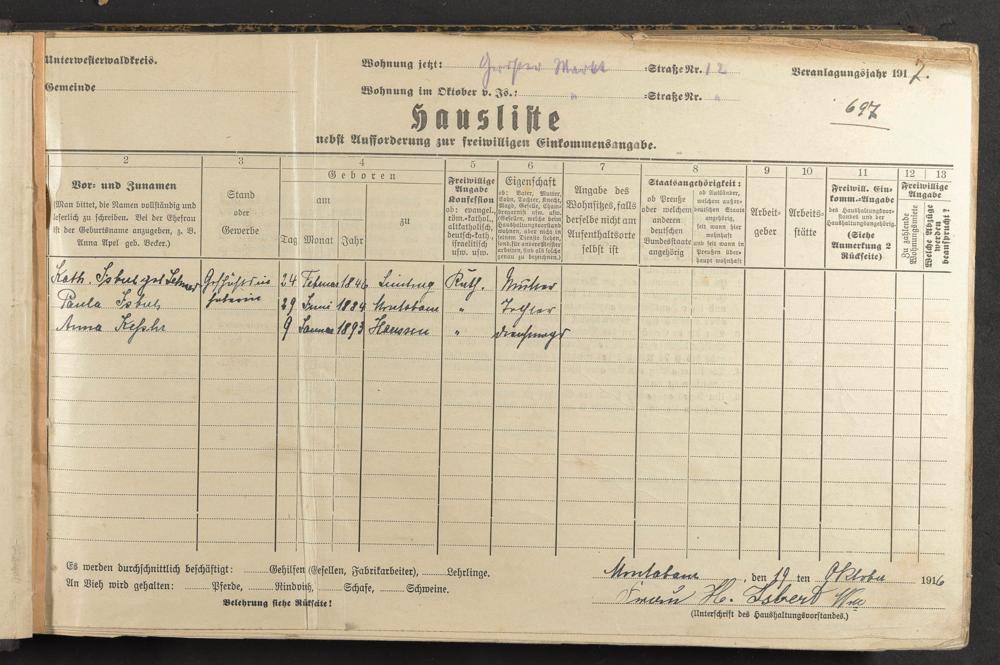 Unterwesterwaldkreis.
Wohnung jetzt: Grosser Markt =Straße Nr. 12
Veranlagungsjahr 1917.
Gemeinde
Wohnung im Oktober v. Js.: " =Straße Nr. "
697
Hausliste
nebst Aufforderung zur freiwilligen Einkommensangabe.
2 3 4 5 6 7 8 9 10 11 12 13
Vor= und Zunamen
(Man bittet, die Namen vollständig und
leserlich zu schreiben. Bei der Ehefrau
ist der Geburtsname anzugeben, z. B.
Anna Apel geb. Becker.)
Stand
oder
Gewerbe
Geboren
am
zu
Tag Monat Jahr
Freiwillige
Angabe
Konfession
ob: evangel.,
röm.=kathol.,
altkatholisch,
deutsch=kath.,
israelitisch
usw. usw.
Eigenschaft
ob: Vater, Mutter,
Sohn, Tochter, Knecht,
Magd, Geselle,
Angabe des
Wohnsitzes, falls
derselbe nicht am
Aufenthaltsorte
selbst ist
Staatsangehörigkeit:
ob Preuße
oder welchem
anderen
deutschen
Bundesstaate
angehörig
ob Ausländer,
welchem außer=
deutschen Staate
angehörig,
seit wann hier
wohnhaft
und seit wann in
Preußen über=
haupt wohnhaft
Arbeit=
geber
Arbeits=
stätte
Freiwill. Ein=
komm.=Angabe
des Haushaltungsvor=
standes und der
Haushaltungsangehörig.
(Siehe
Anmerkung 2
Rückseite)
Freiwillige
Angabe
Zu zahlende
Wohnungsmiete
Welche Abzüge
werden
beansprucht?
Kath. Isbert geb. 24 Februar 1846 Kath. Mutter
Paula Isbert 29 Juni 1884 Montabaur " Tochter
Anna 9 Januar 1893 " Dienstmagd
Es werden durchschnittlich beschäftigt: Gehilfen (Gesellen, Fabrikarbeiter), Lehrlinge.
An Vieh wird gehalten: Pferde, Rindvieh, Schafe, Schweine.
Belehrung siehe Rückseite!
Montabaur, den 19 ten Oktober 1916
Frau H. Isbert Wwe
(Unterschrift des Haushaltungsvorstandes.)